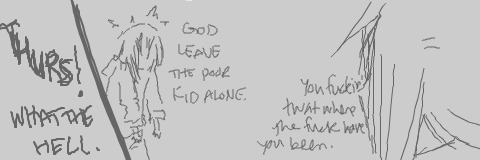 THURS!
WHAT THE
HELL.
GOD
LEAVE
THE POOR
KID ALONE.
You fuckin'
twat where
the fuck have
you been.